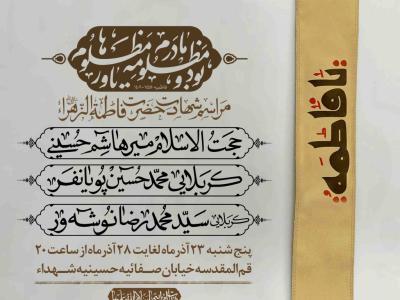 نود و مادرم مظلومه یاور مظلوم ها
مراسم شهادت حضرت فاطمة الزهرا
حجت الاسلام میرهاشم حسینی
کربلایی محمدحسین پویانفر
کربلایی سیدمحمدرضا نوشه ور
پنج شنبه ۲۳ آذرماه لغایت ۲۸ آذرماه از ساعت ۲۰
قم المقدسه خیابان صفائیه حسینیه شهداء
یا فاطمه